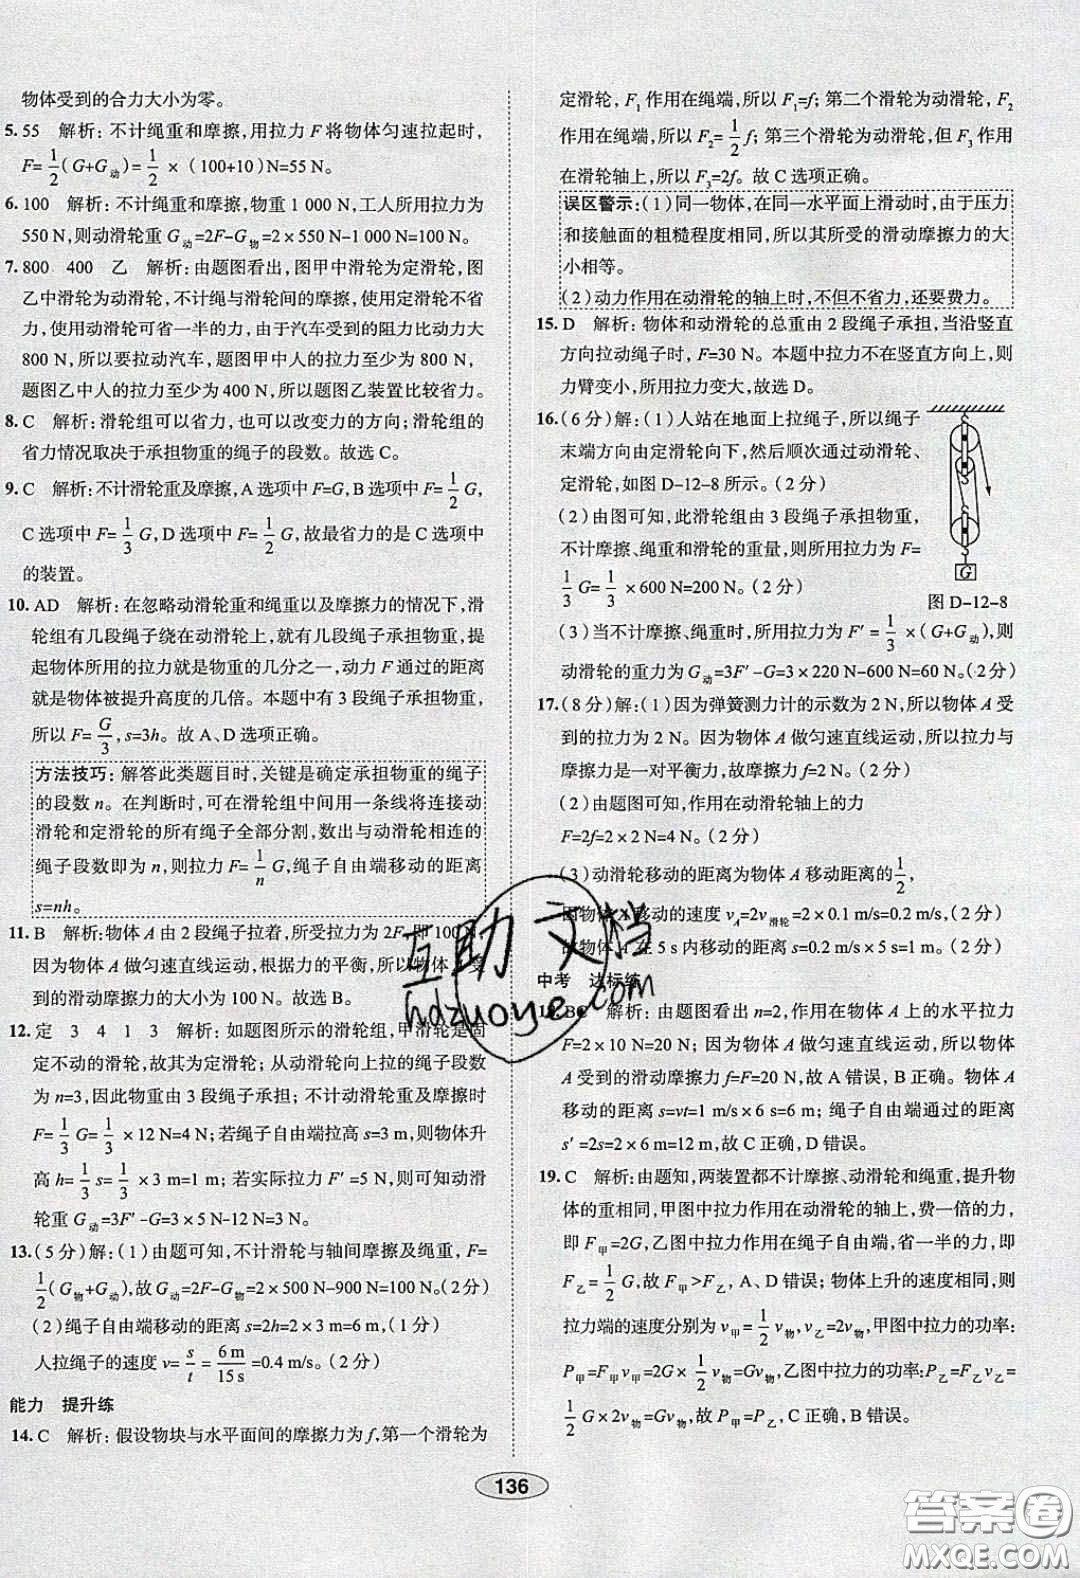 物体受到的合力大小为零。
5. 55　解析:不计绳重和摩擦,用拉力 F 将物体匀速拉起时,
F=1/2(G+G动)=1/2 ×(100+10)N=55 N。
6. 100　解析:不计绳重和摩擦,物重 1 000 N,工人所用拉力为
550 N,则动滑轮重 G动=2F-G物=2×550 N-1 000 N=100 N。
7. 800　400　乙　解析:由题图看出,图甲中滑轮为定滑轮,图
乙中滑轮为动滑轮,不计绳与滑轮间的摩擦,使用定滑轮不省
力,使用动滑轮可省一半的力,由于汽车受到的阻力比动力大
800 N,所以要拉动汽车,题图甲中人的拉力至少为 800 N,
题图乙中人的拉力至少为 400 N,所以题图乙装置比较省力。
8. C　解析:滑轮组可以省力,也可以改变力的方向;滑轮组的
省力情况取决于承担物重的绳子的段数。故选 C。
9. C　解析:不计滑轮重及摩擦,A 选项中 F=G,B 选项中 F=1/2 G,
C 选项中 F=1/3 G,D 选项中 F=1/2 G,故最省力的是 C 选项中
的装置。
10. AD　解析:在忽略动滑轮重和绳重以及摩擦力的情况下,滑
轮组有几段绳子绕在动滑轮上,就有几段绳子承担物重,提
起物体所用的拉力就是物重的几分之一,动力 F 通过的距离
就是物体被提升高度的几倍。本题中有 3 段绳子承担物重,
所以 F=G/3,s=3h。故 A、D 选项正确。
方法技巧:解答此类题目时,关键是确定承担物重的绳子
的段数 n。在判断时,可在滑轮组中间用一条线将连接动
滑轮和定滑轮的所有绳子全部分割,数出与动滑轮相连的
绳子段数即为 n,则拉力 F=1/n G,绳子自由端移动的距离
s=nh。
11. B　解析:物体 A 由 2 段绳子拉着,所受拉力为 2F,即 100 N,
因为物体 A 做匀速直线运动,根据力的平衡,所以物体 A 受
到的滑动摩擦力的大小为 100 N。故选 B。
12. 定　3　4　1　3　解析:如题图所示的滑轮组,甲滑轮是固
定不动的滑轮,故其为定滑轮;从动滑轮向上拉的绳子段数
为 n=3,因此物重由 3 段绳子承担;不计动滑轮重和摩擦时
F=1/3 G=1/3 ×12 N=4 N;若绳子自由端拉高 s=3 m,则物体升
高 h=1/3 s=1/3 ×3 m=1 m;若实际拉力 F′=5 N,不计摩擦,动滑
轮重 G动=3F′-G=3×5 N-12 N=3 N。
13. (5 分)解:(1)由题可知,不计滑轮与轴间摩擦及绳重,F=
1/2(G物+G动),故 G动=2F-G物=2×500 N-900 N=100 N。(2分)
(2)绳子自由端移动的距离 s=2h=2×3 m=6 m,(1分)
人拉绳子的速度 v=s/t=6 m/15 s=0.4 m/s。(2分)
能力　提升练
14. C　解析:假设物块与水平面间的摩擦力为 f,第一个滑轮为
定滑轮,F1 作用在绳端,所以 F1=f;第二个滑轮为动滑轮,F2
作用在绳端,所以 F2=1/2 f;第三个滑轮为动滑轮,但 F3 作用
在滑轮轴上,所以 F3=2f。故 C 选项正确。
误区警示:(1)同一物体,在同一水平面上滑动时,由于压力
和接触面的粗糙程度相同,所以其所受的滑动摩擦力的大
小相等。
(2)动力作用在动滑轮的轴上时,不但不省力,还要费力。
15. D　解析:物体和动滑轮的总重由 2 段绳子承担,当沿竖直
方向拉动绳子时,F=30 N。本题中拉力不在竖直方向上,所以
力臂变小,所用拉力变大,故选 D。
16. (6 分)解:(1)人站在地面上拉绳子,所以绳子
末端方向由定滑轮向下,然后顺次通过动滑轮、
定滑轮,如图 D-12-8 所示。(2分)
(2)由图可知,此滑轮组由 3 段绳子承担物重,
不计摩擦、绳重和滑轮的重量,则所用拉力为 F=
1/3 G=1/3 ×600 N=200 N。(2分)
G
图 D-12-8
(3)当不计摩擦、绳重时,所用拉力为 F′=1/3 ×(G+G动),则
动滑轮的重力为 G动=3F′-G=3×220 N-600 N=60 N。(2分)
17. (8 分)解:(1)因为弹簧测力计的示数为 2 N,所以物体 A 受
到的拉力为 2 N。因为物体 A 做匀速直线运动,所以拉力与
摩擦力是一对平衡力,故摩擦力 f=2 N。(2分)
(2)由题图可知,作用在动滑轮轴上的力
F=2f=2×2 N=4 N。(2分)
(3)动滑轮移动的距离为物体 A 移动距离的1/2,
因物体 A 移动的速度 vA=2v滑轮=2×0.1 m/s=0.2 m/s,(2分)
故物体 A 在 5 s 内移动的距离 s=0.2 m/s×5 s=1 m。(2分)
中考　达标练
18. BC　解析:由题图看出 n=2,作用在物体 A 上的水平拉力
F=2×10 N=20 N;因为物体 A 做匀速直线运动,所以物体
A 受到的滑动摩擦力 f=F=20 N,故 A 错误,B 正确。物体 A
移动的距离 s=vt=1 m/s×6 s=6 m;绳子自由端通过的距离
s′=2s=2×6 m=12 m,故 C 正确,D 错误。
19. C　解析:由题知,两装置都不计摩擦、动滑轮和绳重,提升物
体的重相同,甲图中拉力作用在动滑轮的轴上,费一倍的力,
即 F甲=2G,乙图中拉力作用在绳子自由端,省一半的力,即
F乙=1/2 G,故 F甲>F乙,A、D 错误;物体上升的速度相同,则
拉力端的速度分别为 v甲=1/2 v物,v乙=2v物,甲图中拉力的功率:
P甲=F甲v甲=2G×1/2 v物=Gv物,乙图中拉力的功率:P乙=F乙v乙=
1/2 G×2v物=Gv物,故 P甲=P乙,C 正确,B 错误。故选 C。
136
互助文档
hdzuoye.com
答案圈
MXQE.COM